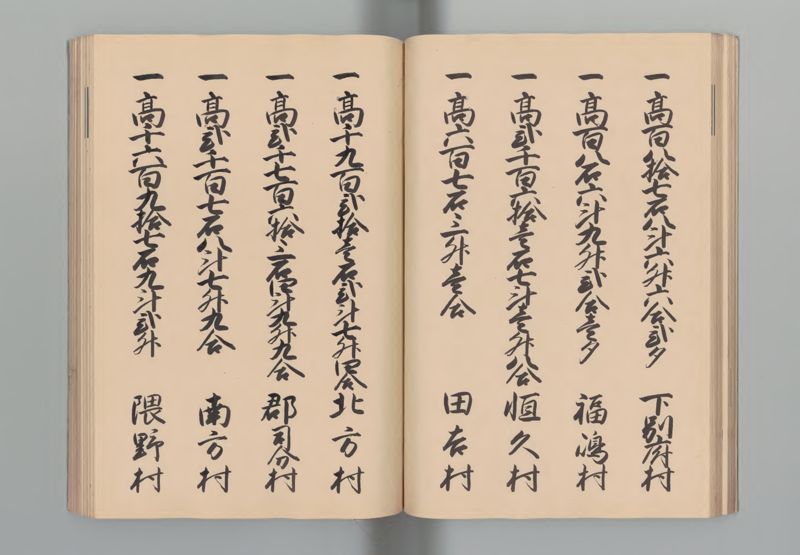 一高百八拾七石八斗六升六合弐夕　下別府村
一高百八石六斗九升弐合壱夕　福嶋村
一高弐千百六拾壱石七斗壱升八合　恒久村
一高六百七石三升壱合　田吉村
一高千九百弐拾壱石弐斗七升四合　北方村
一高弐千七百六拾三石四斗九升九合　郡司分村
一高弐千百七石八斗七升九合　南方村
一高千六百九拾七石九斗弐升　隈野村